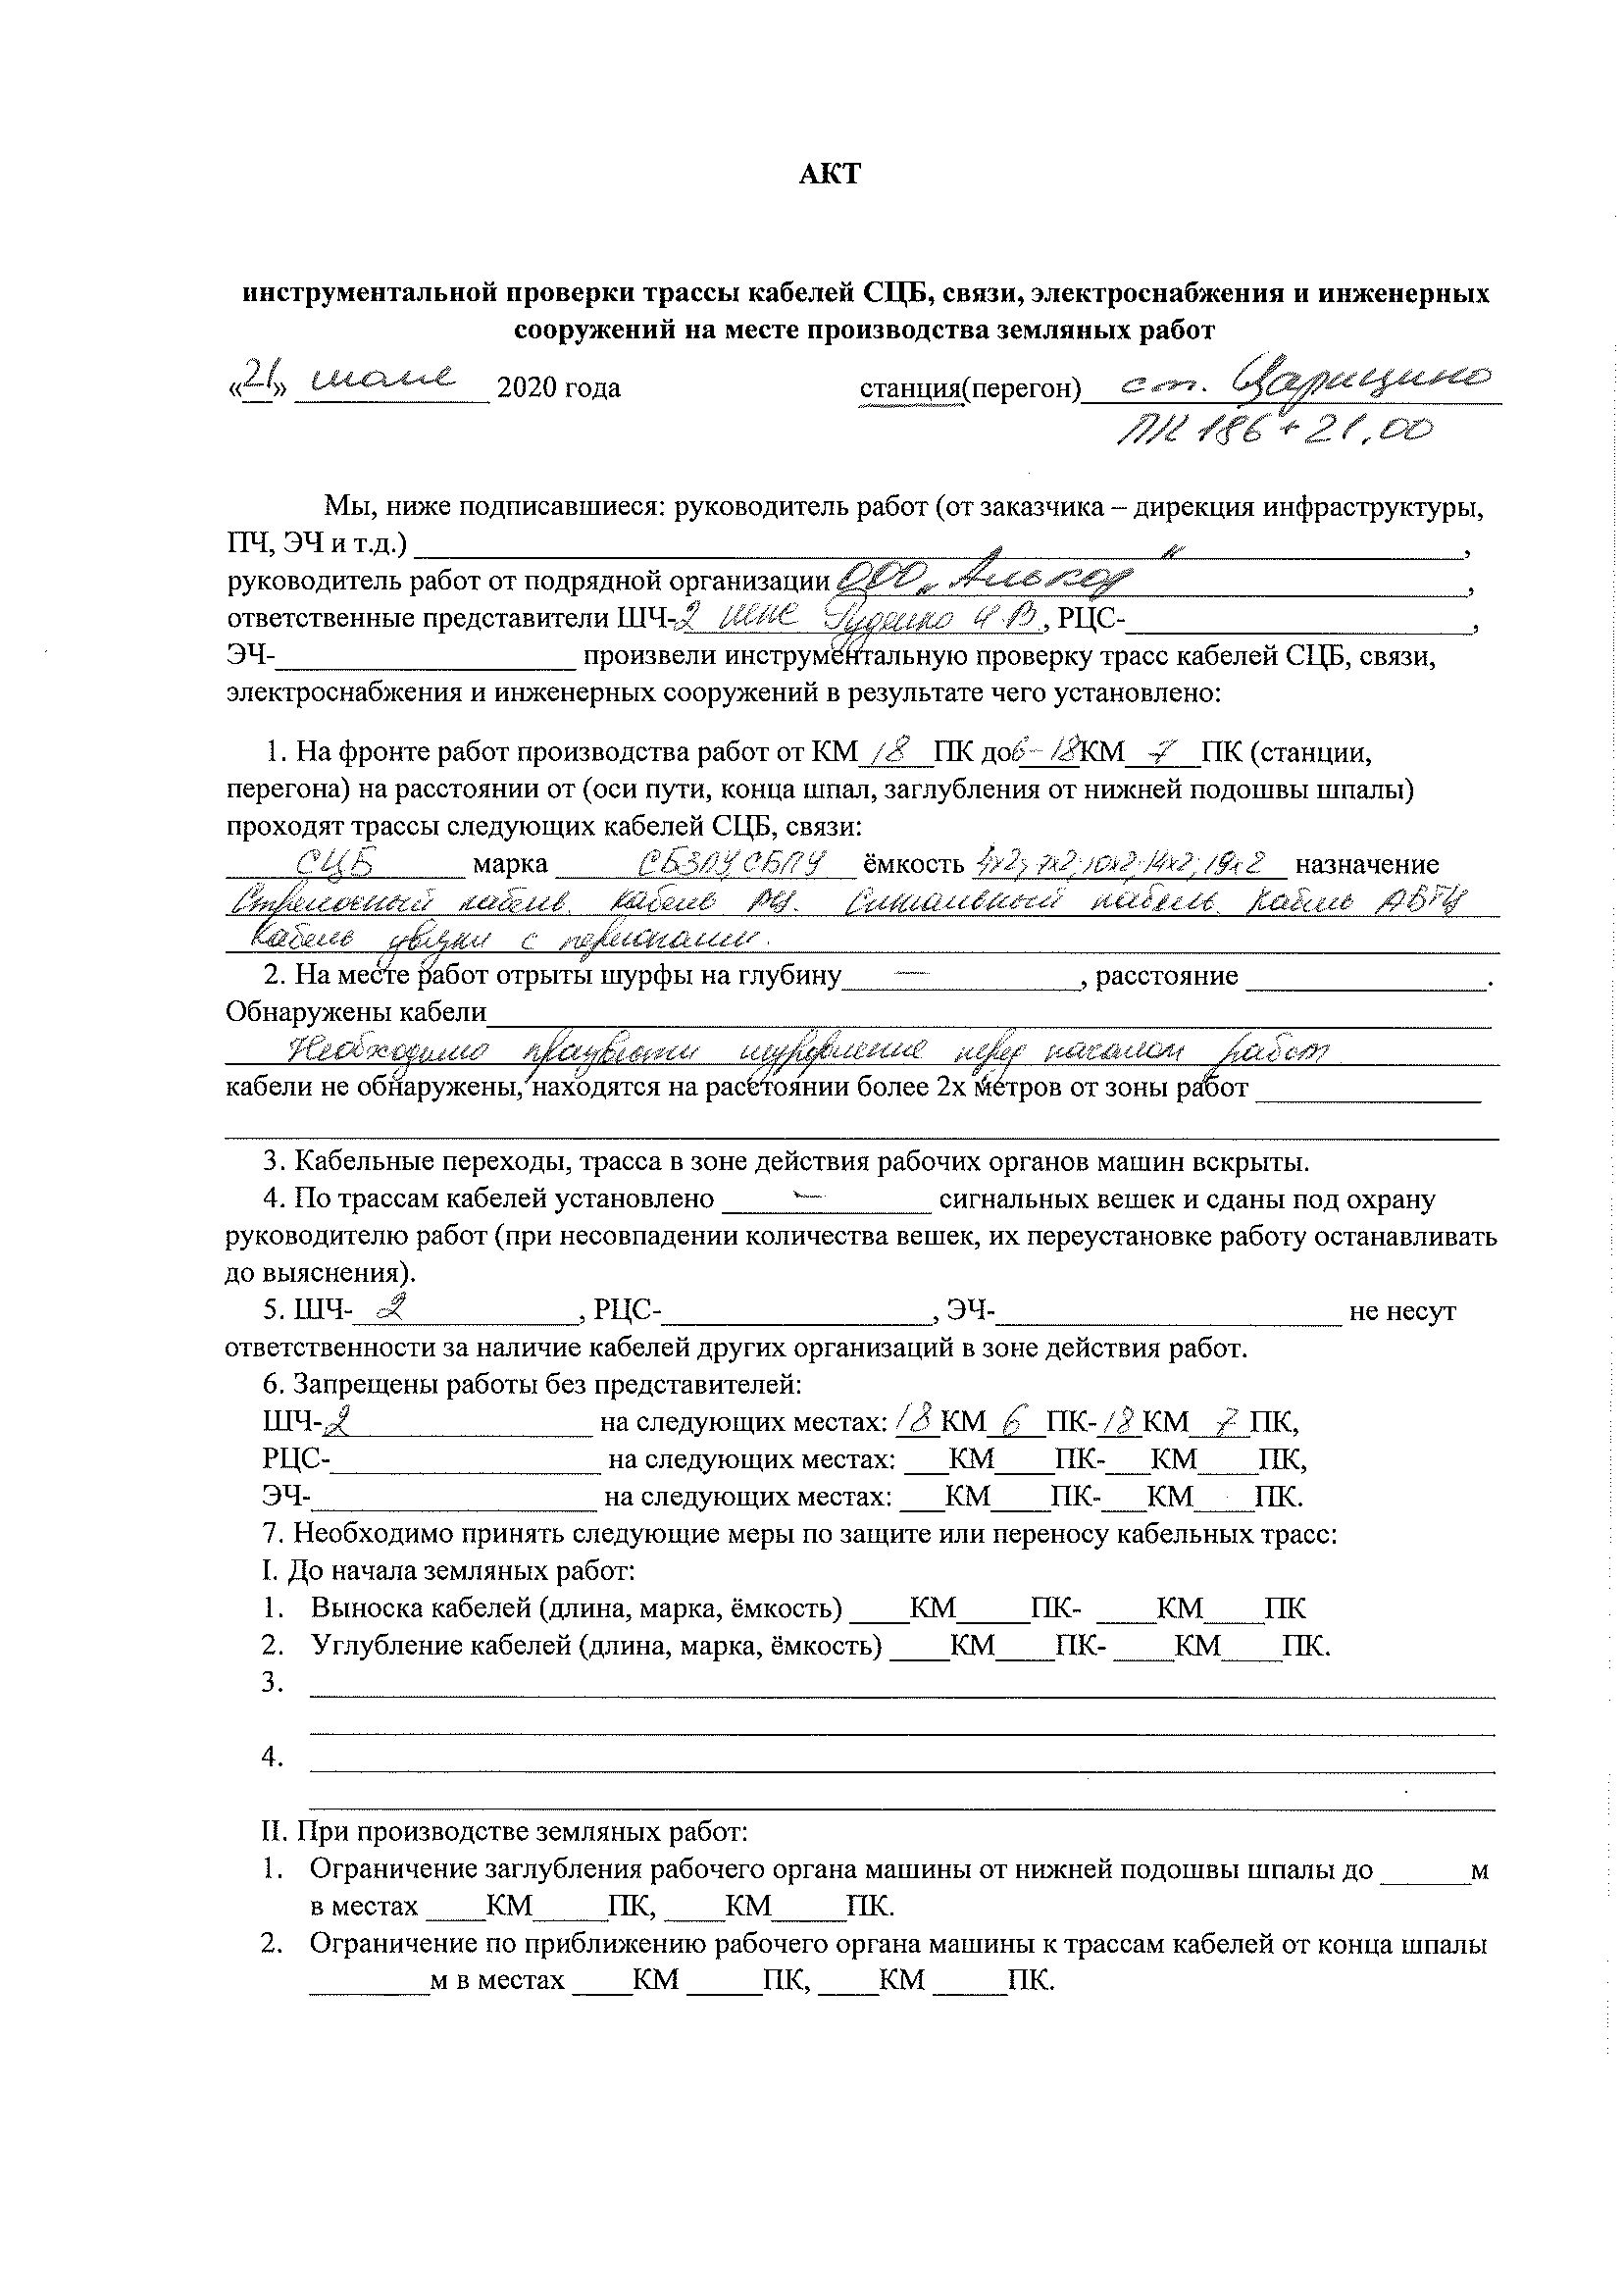 АКТ
инструментальной проверки трассы кабелей СЦБ, связи, электроснабжения и инженерных
сооружений на месте производства земляных работ
«21» 2020 года станция(перегон) ст. Царицыно
ПК 186+21,00
Мы, ниже подписавшиеся: руководитель работ (от заказчика – дирекция инфраструктуры,
ПЧ, ЭЧ и т.д.) ,
руководитель работ от подрядной организации ООО „Алькор" ,
ответственные представители ШЧ-2 Руденко , РЦС- ,
ЭЧ- произвели инструментальную проверку трасс кабелей СЦБ, связи,
электроснабжения и инженерных сооружений в результате чего установлено:
1. На фронте работ производства работ от КМ 18 ПК до 6 - 18 КМ 7 ПК (станции,
перегона) на расстоянии от (оси пути, конца шпал, заглубления от нижней подошвы шпалы)
проходят трассы следующих кабелей СЦБ, связи:
СЦБ марка СБЗПУ СБПУ ёмкость 4х2; 7х2; 10х2; 14х2; 19х2 назначение
Стрелочный кабель. Кабель РЦ. Сигнальный кабель. Кабель АБТЦ
Кабель увязки с перегонами.
2. На месте работ отрыты шурфы на глубину — , расстояние .
Обнаружены кабели
Необходимо произвести шурфление перед началом работ
кабели не обнаружены, находятся на расстоянии более 2х метров от зоны работ
3. Кабельные переходы, трасса в зоне действия рабочих органов машин вскрыты.
4. По трассам кабелей установлено — сигнальных вешек и сданы под охрану
руководителю работ (при несовпадении количества вешек, их переустановке работу останавливать
до выяснения).
5. ШЧ- 2 , РЦС- , ЭЧ- не несут
ответственности за наличие кабелей других организаций в зоне действия работ.
6. Запрещены работы без представителей:
ШЧ-2 на следующих местах: 18 КМ 6 ПК- 18 КМ 7 ПК,
РЦС- на следующих местах: КМ ПК- КМ ПК,
ЭЧ- на следующих местах: КМ ПК- КМ ПК.
7. Необходимо принять следующие меры по защите или переносу кабельных трасс:
I. До начала земляных работ:
1. Выноска кабелей (длина, марка, ёмкость) КМ ПК- КМ ПК
2. Углубление кабелей (длина, марка, ёмкость) КМ ПК- КМ ПК.
3.
4.
II. При производстве земляных работ:
1. Ограничение заглубления рабочего органа машины от нижней подошвы шпалы до м
в местах КМ ПК, КМ ПК.
2. Ограничение по приближению рабочего органа машины к трассам кабелей от конца шпалы
м в местах КМ ПК, КМ ПК.